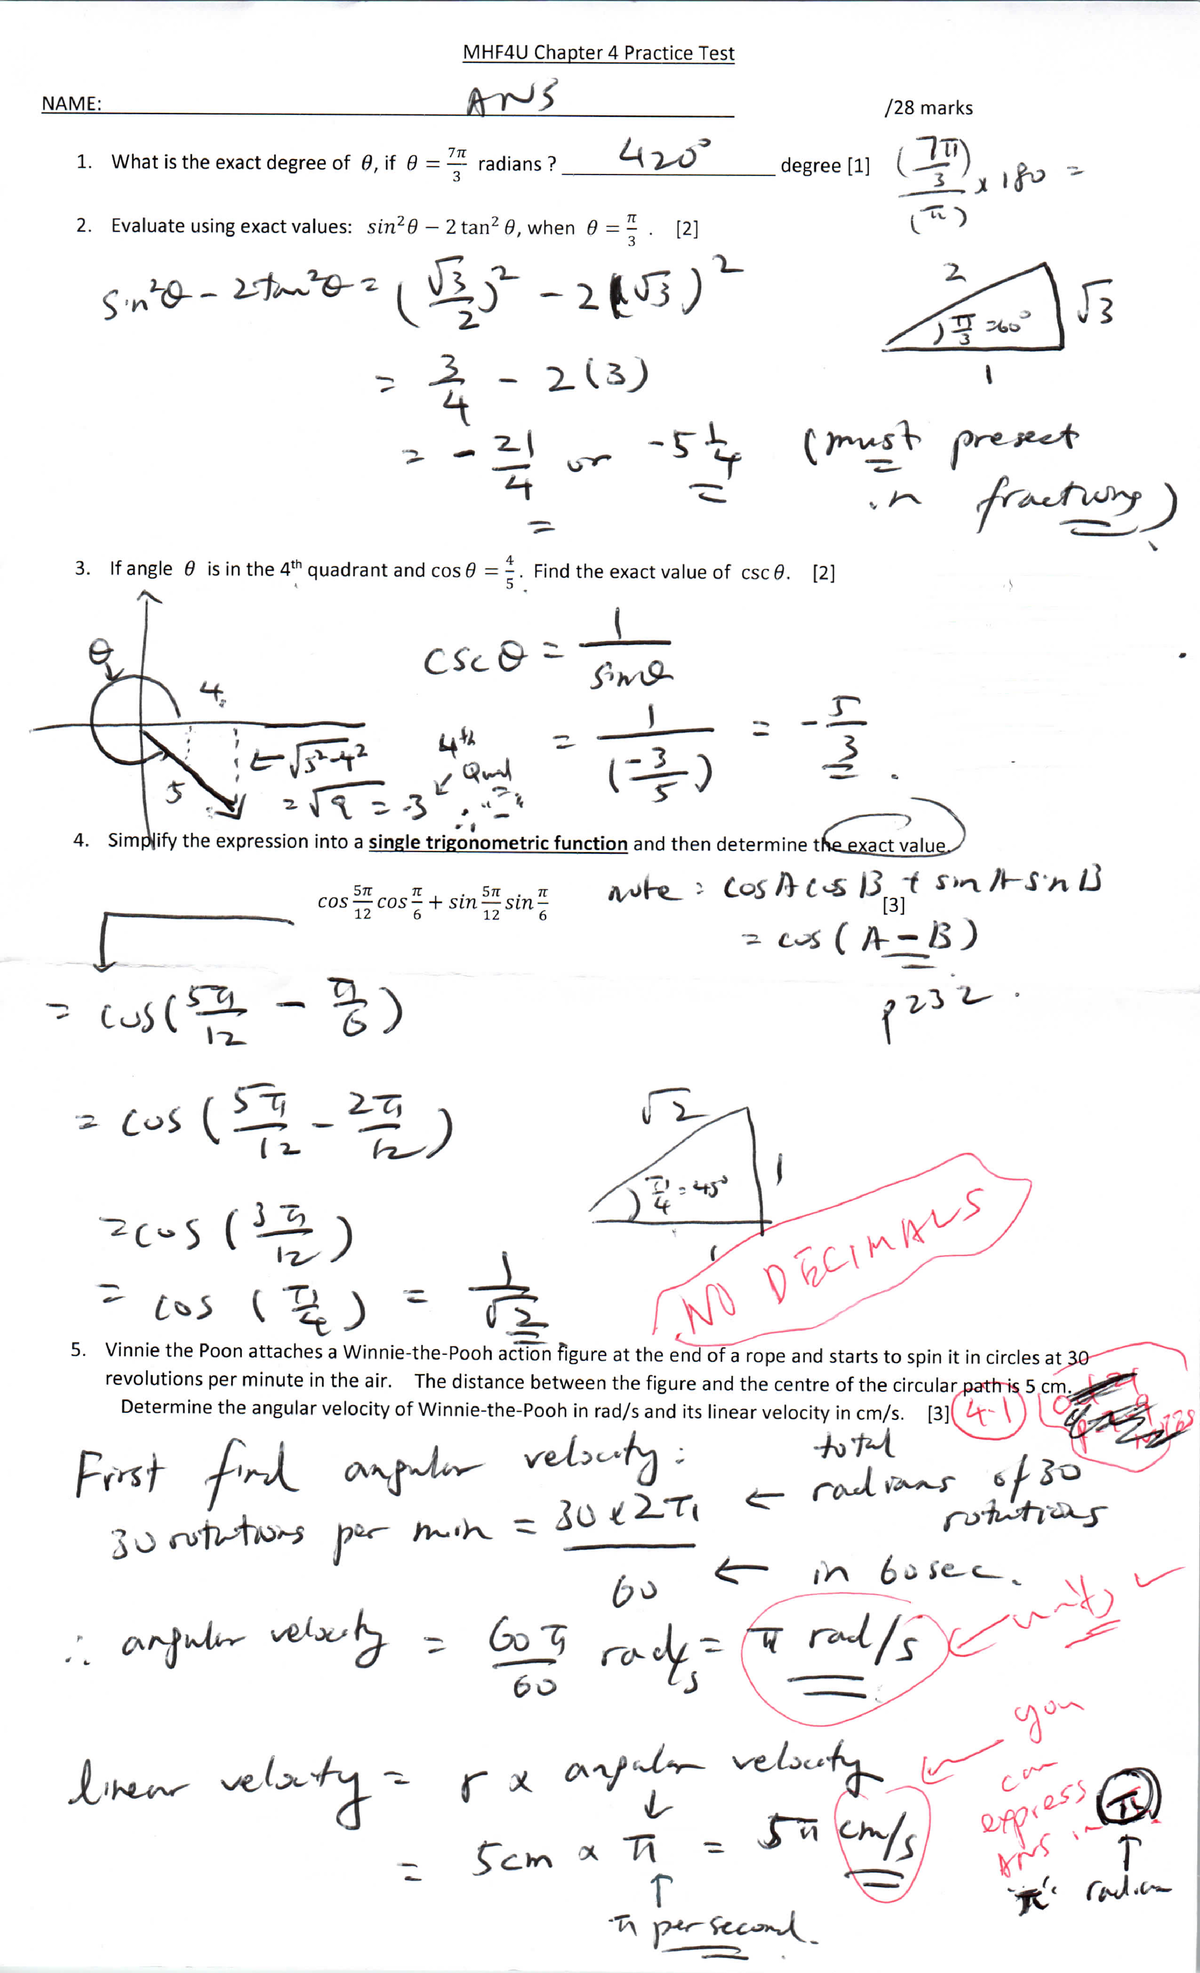 MHF4U Chapter 4 Practice Test
NAME: ANS /28 marks
1. What is the exact degree of θ, if θ = 7π/3 radians ? 420° degree [1] (7π/3)/(π) x 180 =
2. Evaluate using exact values: sin²θ – 2 tan² θ, when θ = π/3 . [2]
sin²θ - 2tan²θ = (√3/2)² - 2(√3)²
2 √3 π/3 = 60° 1
= 3/4 - 2(3)
= - 21/4 or -5 1/4 (must present
in fractions)
3. If angle θ is in the 4th quadrant and cos θ = 4/5 . Find the exact value of csc θ. [2]
θ 4 5
csc θ = 1/sinθ
← √5²-4²
= √9 = -3
4th Quad
∴ "-"
= 1/(-3/5) = - 5/3 .
4. Simplify the expression into a single trigonometric function and then determine the exact value.
cos 5π/12 cos π/6 + sin 5π/12 sin π/6
note : cos A cos B + sin A sin B
[3]
= cos (A - B)
p232 .
= cos(5π/12 - π/6)
= cos (5π/12 - 2π/12)
√2 π/4 = 45° 1 1
= cos (3π/12)
= cos (π/4) = 1/√2
NO DECIMALS
5. Vinnie the Poon attaches a Winnie-the-Pooh action figure at the end of a rope and starts to spin it in circles at 30
revolutions per minute in the air. The distance between the figure and the centre of the circular path is 5 cm.
Determine the angular velocity of Winnie-the-Pooh in rad/s and its linear velocity in cm/s. [3] 4-1
First find angular velocity :
30 rotations per min = 30 x 2π/60
← total radians of 30 rotations
← in 60 sec.
∴ angular velocity = 60π/60 rad/s = π rad/s ← units ✓
linear velocity = r x angular velocity
= 5cm x π = 5π cm/s
↑
π per second.
← you
can
express
ANS in π
↑
radian